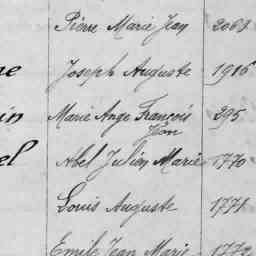 Pierre Marie Jean 2069
ne Joseph Auguste 1916
in Marie Ange François 295
Jean
el Abel Julien Marie 1770
Louis Auguste 1771
Emile Jean Marie 1772